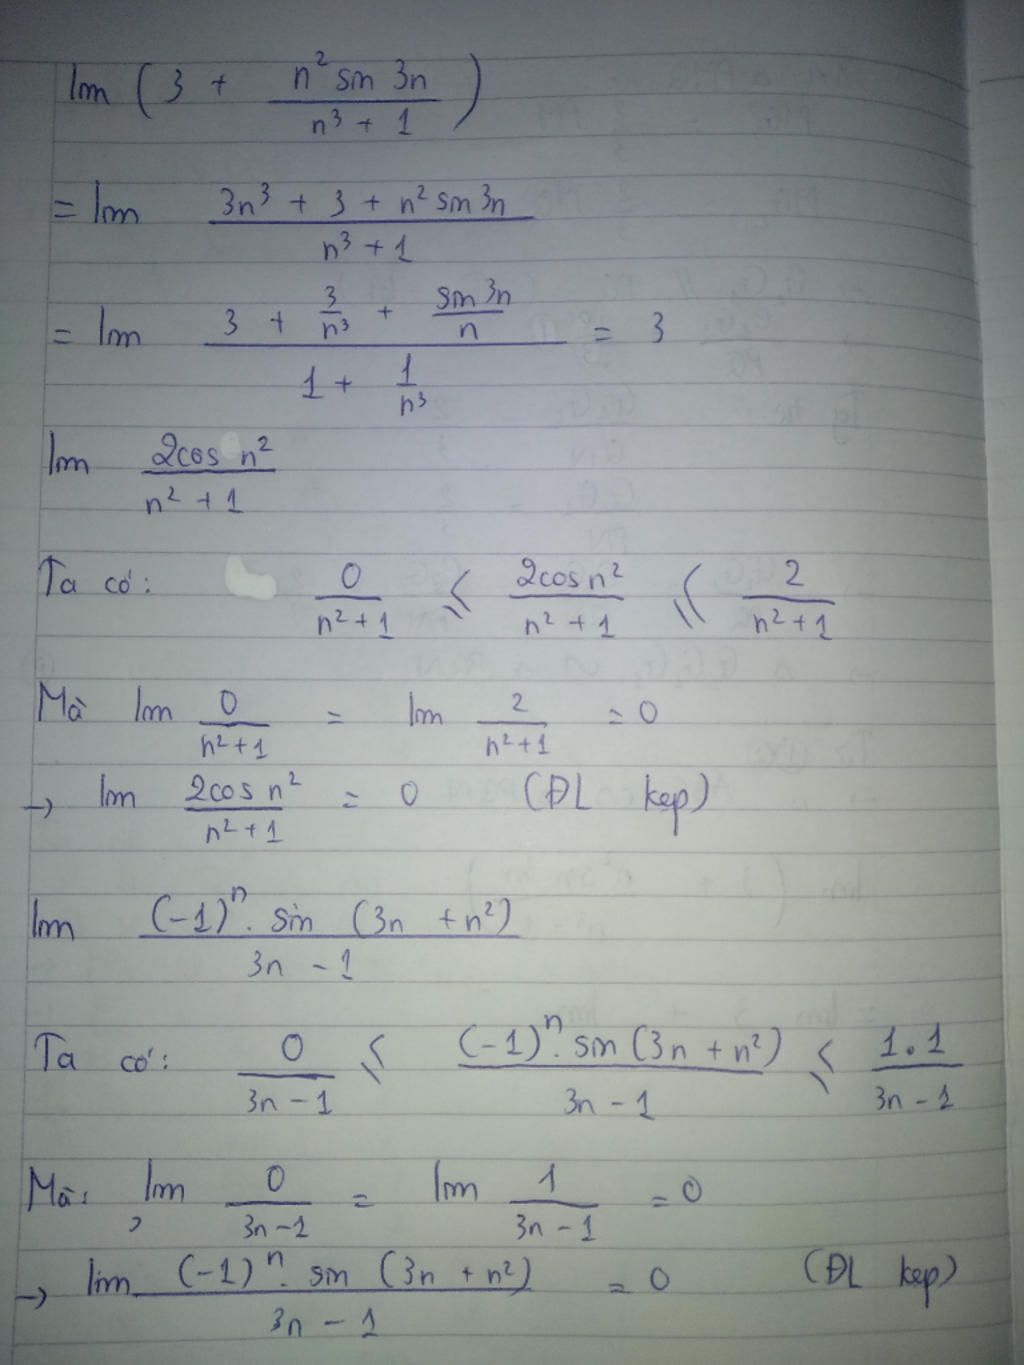 lim (3 + n² sin 3n / n³ + 1)
= lim 3n³ + 3 + n² sin 3n / n³ + 1
= lim 3 + 3/n³ + sin 3n/n / 1 + 1/n³ = 3
lim 2cos n² / n² + 1
Ta có: 0 / n² + 1 ≤ 2cos n² / n² + 1 ≤ 2 / n² + 1
Mà lim 0 / n² + 1 = lim 2 / n² + 1 = 0
→ lim 2cos n² / n² + 1 = 0 (ĐL kẹp)
lim (-1)ⁿ. sin (3n + n²) / 3n - 1
Ta có: 0 / 3n - 1 ≤ (-1)ⁿ. sin (3n + n²) / 3n - 1 ≤ 1.1 / 3n - 1
Mà: lim 0 / 3n - 1 = lim 1 / 3n - 1 = 0
→ lim (-1)ⁿ. sin (3n + n²) / 3n - 1 = 0 (ĐL kẹp)